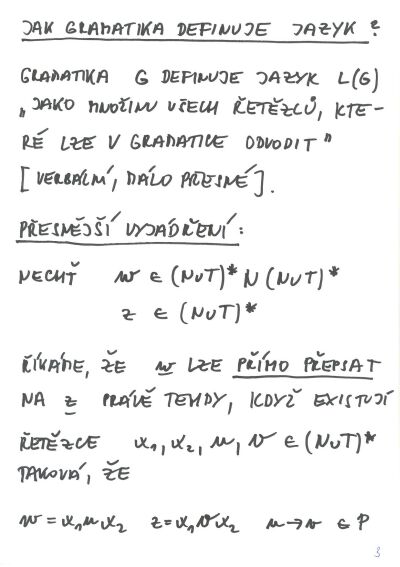 JAK GRAMATIKA DEFINUJE JAZYK ?
GRAMATIKA G DEFINUJE JAZYK L(G)
„JAKO MNOŽINU VŠECH ŘETĚZCŮ, KTE-
RÉ LZE V GRAMATICE ODVODIT"
[VERBÁLNÍ, MÁLO PŘESNÉ].
PŘESNĚJŠÍ VYJÁDŘENÍ:
NECHŤ w ∈ (N∪T)* N (N∪T)*
z ∈ (N∪T)*
ŘÍKÁME, ŽE w LZE PŘÍMO PŘEPSAT
NA z PRÁVĚ TEHDY, KDYŽ EXISTUJÍ
ŘETĚZCE x₁, x₂, u, v ∈ (N∪T)*
TAKOVÁ, ŽE
w = x₁ux₂ z = x₁vx₂ u → v ∈ P
3